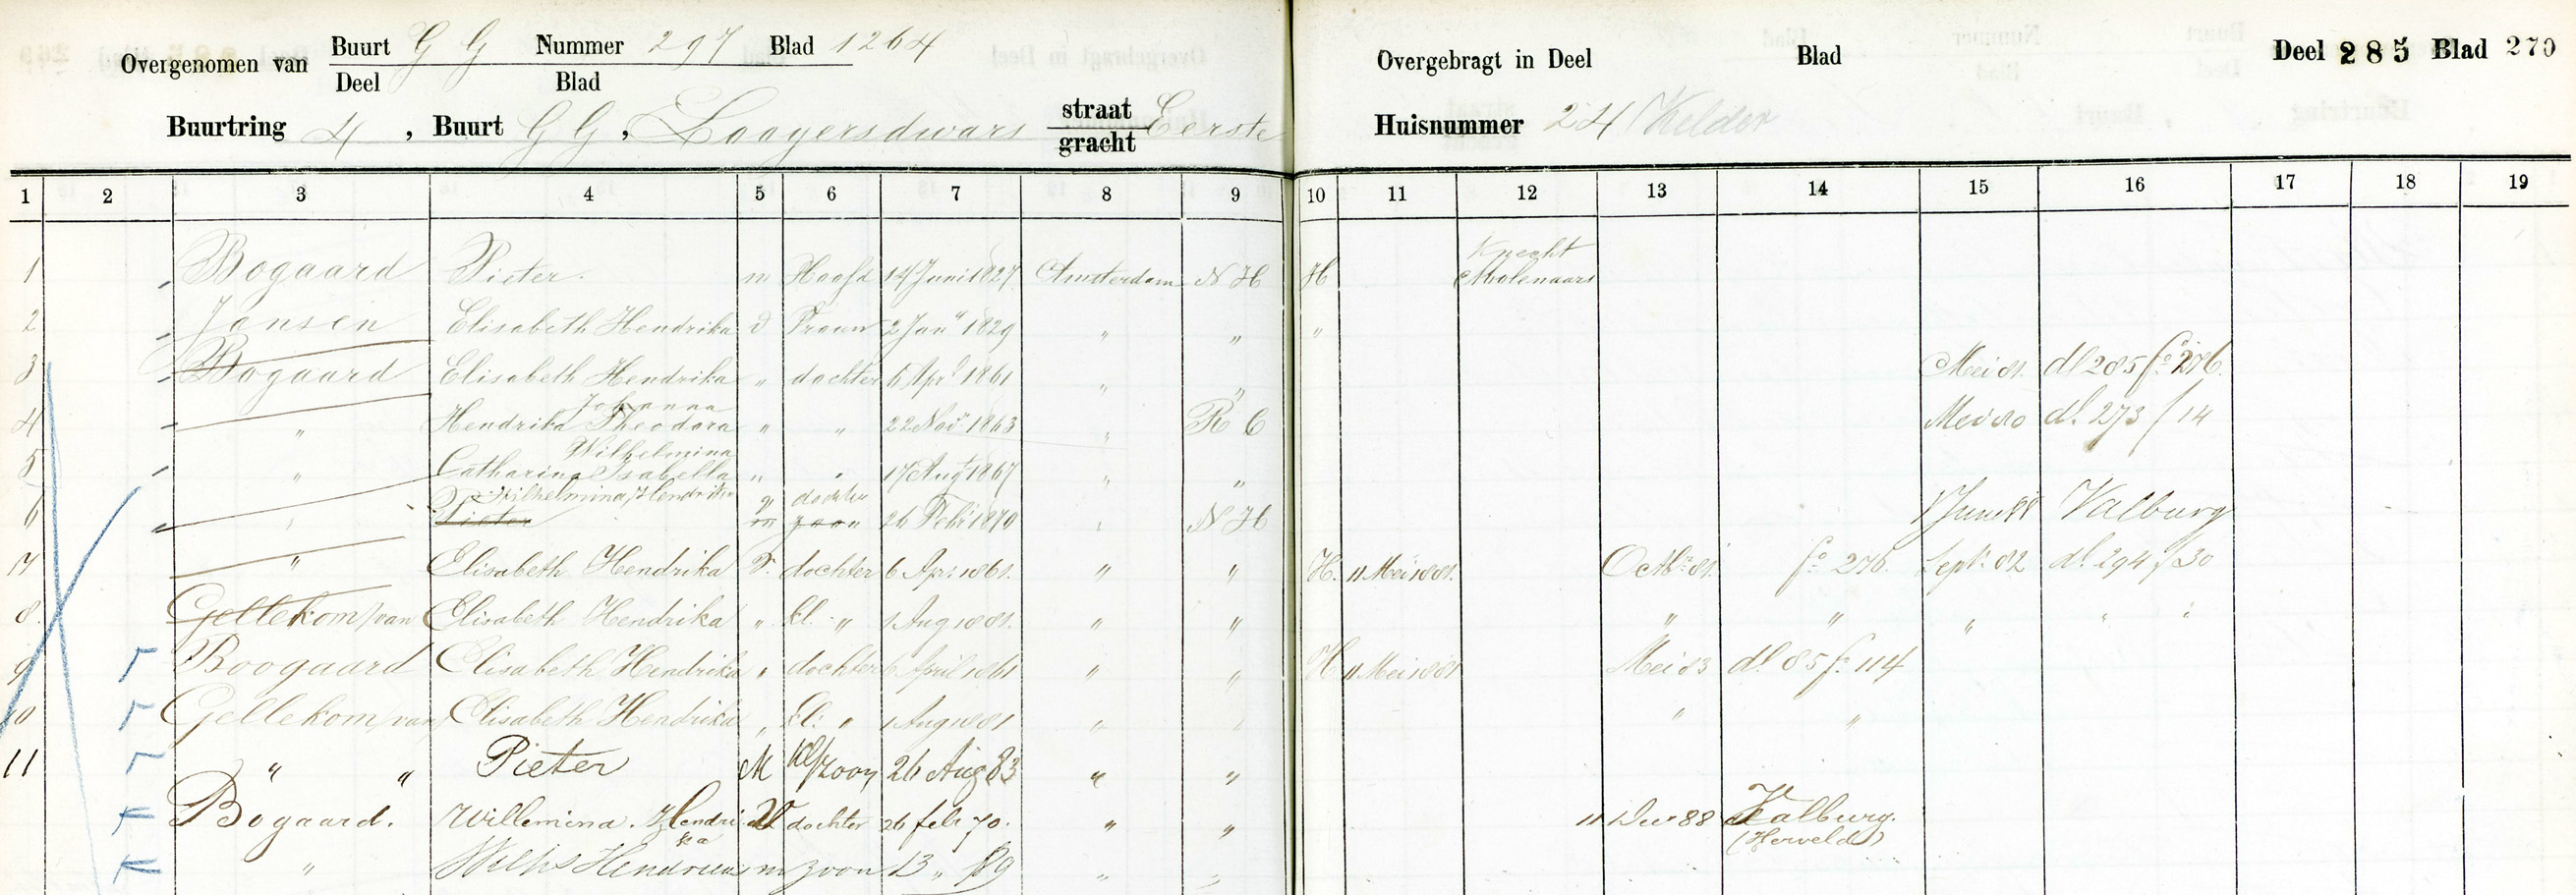 Overgenomen van Buurt G G Nummer 297 Blad 1264
Deel Blad
Overgebragt in Deel Blad
Deel 285 Blad 270
Buurtring 4, Buurt G G, Looyersdwars straat Eerste
gracht
Huisnummer 24 Kelder
1 2 3 4 5 6 7 8 9 10 11 12 13 14 15 16 17 18 19
Knecht
1 Bogaard Pieter. m Hoofd 14 Juni 1827 Amsterdam N H H Molenaars
2 Jansen Elisabeth Hendrika v Vrouw 2 Jany 1829 " " "
3 Bogaard Elisabeth Hendrika " dochter 6 Apl 1861 " " Mei 81. dl 285 fo 276.
Johanna
4 " Hendrika Theodora " " 22 Nov 1863 " R C Mei 80 dl. 273 f 14
Wilhelmina
5 " Catharina Isabella " " 17 Augt 1867 " "
Wilhelmina Hendrika v dochter
6 " Pieter m zoon 26 Feb 1870 " N H 1 Juni 88 Valburg
7 " Elisabeth Hendrika v. dochter 6 Apr. 1861. " " H. 11 Mei 1881. Octbr 81. fo 276. Sept. 82 dl. 294 f 30
8. Gellekom/van Elisabeth Hendrika " kl. " 1 Aug 1881. " " " " " " "
9 Boogaard Elisabeth Hendrika " dochter 6 April 1861 " " H 11 Mei 1881 Mei 83 dl 85 fo 114
10 Gellekom/van Elisabeth Hendrika " kl: " 1 Aug 1881 " " " "
11 " " Pieter M kl/zoon 26 Aug 83 " "
Bogaard. Willemina. Hendri V dochter 26 feb 70. " " 11 Dec 88 Valburg.
ka (Herveld)
" Wilhs Hendricus m zoon 13 " 89 " "